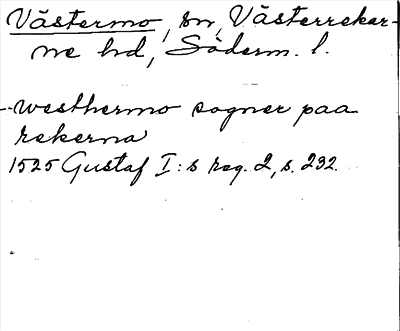 Västermo, sn, Västerrekar-
ne hd, Söderm. l.
--westhermo sogner paa
rekerna
1525 Gustaf I:s reg. 2, s. 232.